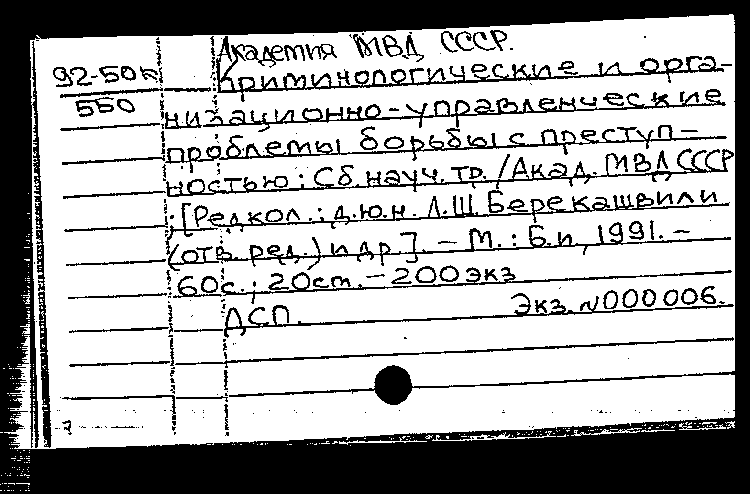 Академия МВД СССР.
92-50к
Криминологические и орга-
550
низационно-управленческие
проблемы борьбы с преступ-
ностью: Сб. науч. тр. / Акад. МВД СССР
; [Редкол.: д.ю.н. Л.Ш. Берекашвили
(отв. ред.) и др.]. - М.: Б.и, 1991. -
60с.; 20см. - 200экз
ДСП. Экз. N000006.
7